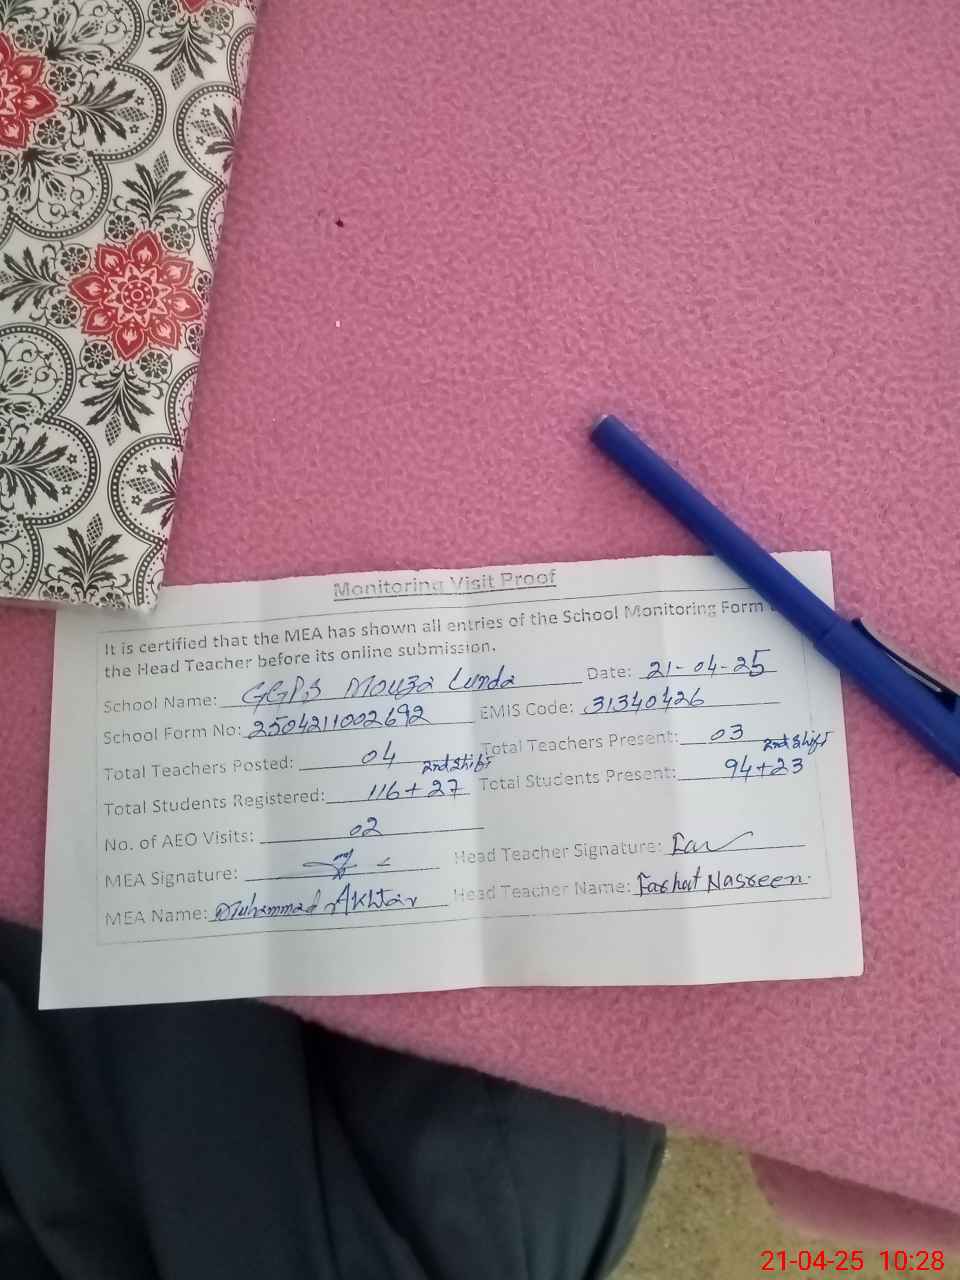 Monitoring Visit Proof
It is certified that the MEA has shown all entries of the School Monitoring Form
the Head Teacher before its online submission.
School Name: GGPS Mouza Lunda Date: 21-04-25
School Form No: 2504211002692 EMIS Code: 31340426
Total Teachers Posted: 04 Total Teachers Present: 03
2nd Shift 2nd Shift
Total Students Registered: 116+27 Total Students Present: 94+23
No. of AEO Visits: 02
MEA Signature: Head Teacher Signature: Far
MEA Name: Muhammad Akhtar Head Teacher Name: Farhat Nasreen.
21-04-25 10:28